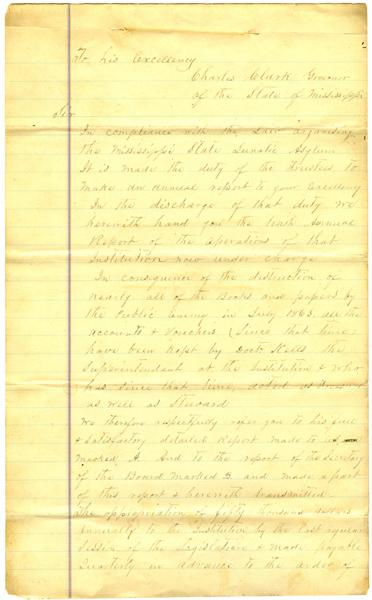 To his Excellency
Charles Clark Governor
of the State of Mississippi
Sir
In compliance with the Law organising
the Mississippi State Lunatic Asylum
It is made the duty of the trustees to
make an annual report to your Excellency
In the discharge of that duty we
herewith hand you the tenth Annual
Report of the operations of that
Institution now under charge
In consequence of the distruction of
nearly all of the Books and papers by
the Public Enemy in July 1863. all the
accounts & Vouchers (Since that time)
have been kept by Doct the
Superintendant at the Institution & who
has since that time, acted as
as well as Steward
We therefore respectfully refer you to his full
& Satisfactory detailed Report made to us
Marked A. And to the report of the Secretary
of the Board Marked B. and made a part
of this report & herewith transmitted
The appropriation of fifty thousand dollars
annually to the Institution by the last regular
Session of the Legislature & made payable
Quarterly in advance to the order of